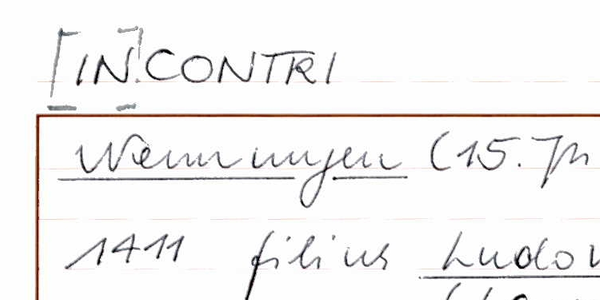 [IN]CONTRI
Nennungen (15. Jh
1411 filius Ludov